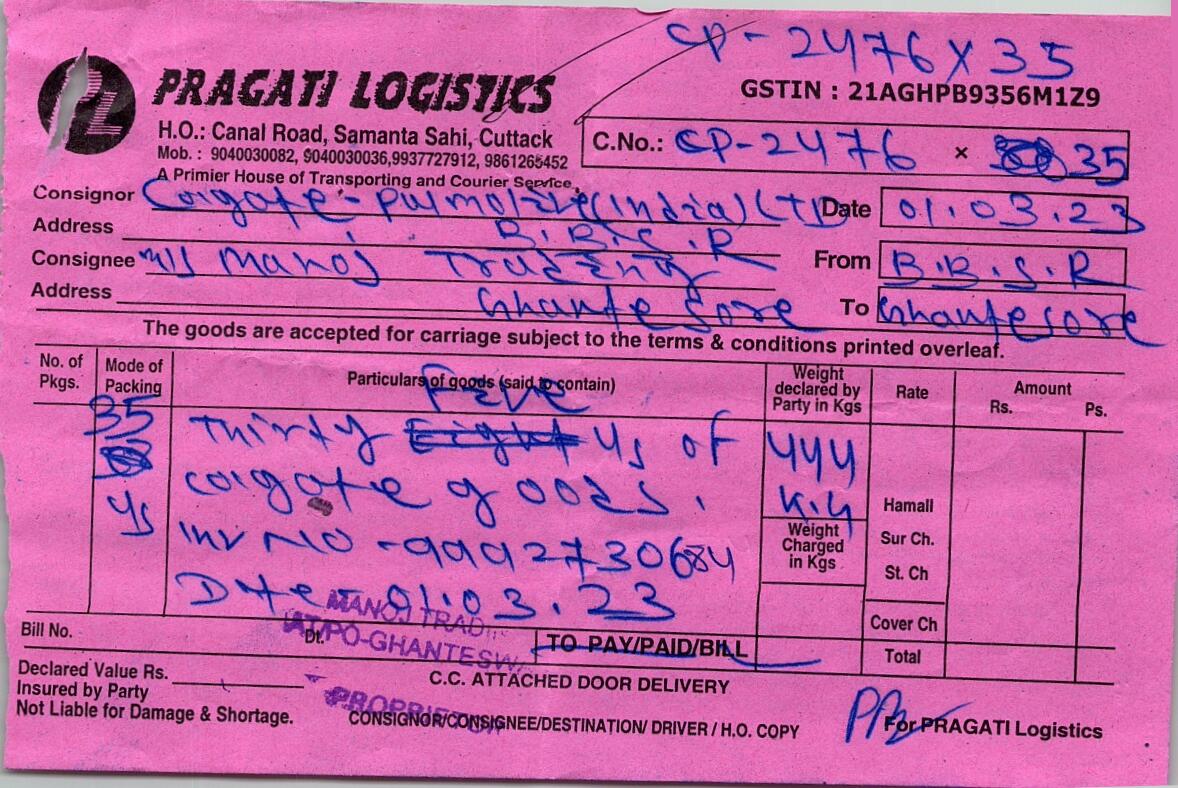 CP-2476 X 35
PL
PRAGATI LOGISTICS
GSTIN : 21AGHPB9356M1Z9
H.O.: Canal Road, Samanta Sahi, Cuttack
Mob. : 9040030082, 9040030036,9937727912, 9861265452
A Primier House of Transporting and Courier Service.
C.No.: CP-2476 × 35
Consignor Colgate-Palmolive(India)LTD Date 01.03.23
Address B.B.S.R
Consignee M/S Manoj Trading From B.B.S.R
Address Ghantesore To Ghantesore
The goods are accepted for carriage subject to the terms & conditions printed overleaf.
No. of Pkgs. Mode of Packing Particulars of goods (said to contain) Weight declared by Party in Kgs Rate Amount Rs. Ps.
35 Five
Thirty Eight of 444
Colgate goods. K.G
Hamali
Inv No - 9992730684 Weight Charged in Kgs Sur Ch.
St. Ch
Date - 01.03.23
Cover Ch
MANOJ TRAD
Bill No. Dt. TO PAY/PAID/BILL Total
AT/PO-GHANTESW
Declared Value Rs.
C.C. ATTACHED DOOR DELIVERY
Insured by Party
PROPRIETOR
Not Liable for Damage & Shortage. CONSIGNOR/CONSIGNEE/DESTINATION/ DRIVER / H.O. COPY For PRAGATI Logistics